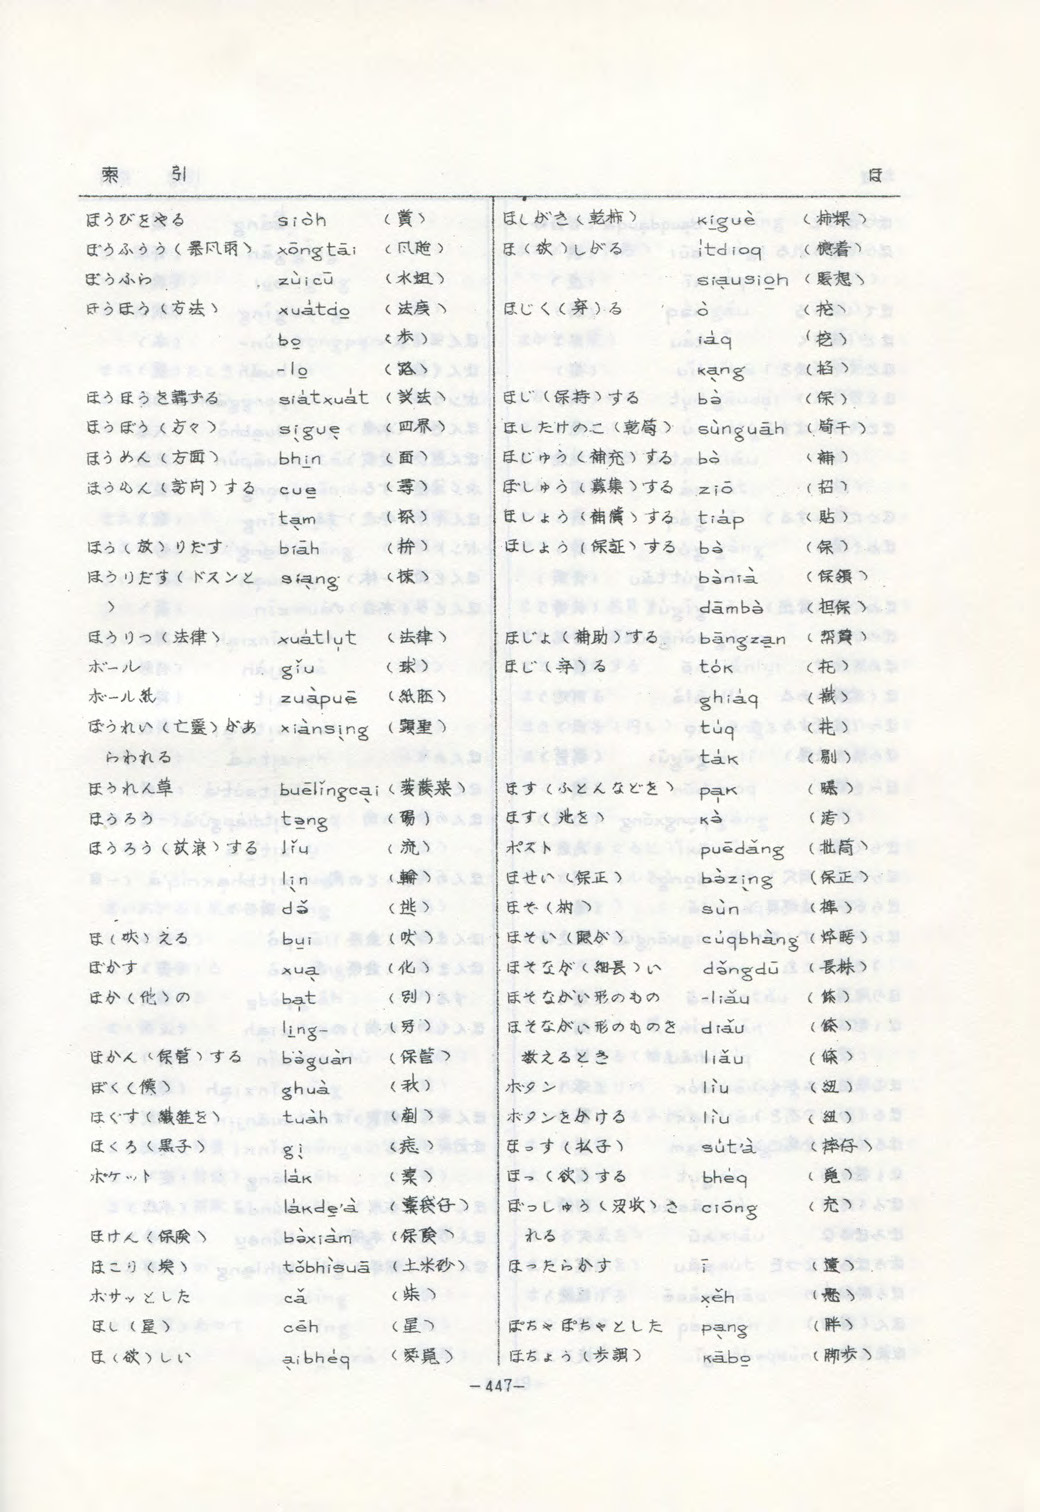 索 引
ほ
ほうびをやる siòh (賞)
ぼうふうう(暴风雨) xōngtāi (风颱)
ぼうふら zùicū (水蛆)
ほうほう(方法) xuátdo̱ (法度)
bo̱ (歩)
-lo̱ (路)
ほうほうを講ずる siátxuát (設法)
ほうぼう(方々) sị̀gue̱ (四界)
ほうめん(方面) bhi̱n (面)
ほうもん(訪問)する cue̱ (尋)
tạm (探)
ほう(放)りだす biāh (拚)
ほうりだす(ドスンと siạng (𢱤)
)
ほうりつ(法律) xuátlụt (法律)
ボール gǐu (球)
ボール紙 zuàpuē (紙胚)
ぼうれい(亡霊)があ xiànsịng (顕聖)
らわれる
ほうれん草 buēlǐngcại (菠薐菜)
ほうろう tə̱ng
ほうろう(放浪)する lǐu (流)
lị̱n (輪)
dǎ (逃)
ほ(吠)える bu̱i (吠)
ぼかす xuạ (化)
ほか(他)の bạt (別)
li̱ng- (另)
ほかん(保管)する bə̀guàn (保管)
ぼく(僕) ghuà
ほぐす(繊維を) tuàh
ほくろ(黒子) gị (痣)
ポケット lák (橐)
lákde̱'à (橐袋仔)
ほけん(保険) bə̀xiàm (保険)
ほこり(埃) tǒbhìsuā (土米砂)
ボサッとした cǎ (柴)
ほし(星) cēh (星)
ほ(欲)しい ạibhéq (愛覓)
ほしがき(乾柿) ki̱guè (柿粿)
ほ(欲)しがる ítdioq (憶着)
siạusio̱h (賬想)
ほじく(穿)る ò (挖)
iáq (挖)
kạng
ほじ(保持)する bà (保)
ほしたけのこ(乾筍) sùnguāh (筍干)
ほじゅう(補充)する bò (補)
ぼしゅう(募集)する ziō (招)
ほしょう(補償)する tiáp (貼)
ほしょう(保証)する bà (保)
bə̀nià (保領)
dāmbà (担保)
ほじょ(補助)する bāngza̱n (幇賛)
ほじ(穿)る tók (托)
ghiáq
túq
ták (剔)
ほす(ふとんなどを) pạk (曝)
ほす(池を) kà
ポスト puēdǎng (批筒)
ほせい(保正) bə̀zịng (保正)
ほぞ(枘) sùn (榫)
ほそい(眼が) cúqbhāng
ほそなが(細長)い də̌ngdū (長株)
ほそながい形のもの -liǎu (條)
ほそながい形のものを diǎu (條)
数えるとき liǎu (條)
ボタン lìu (紐)
ボタンをかける lìu (紐)
ほっす(払子) sút'à (摔仔)
ほっ(欲)する bhéq (覓)
ぼっしゅう(没收)さ ciōng (充)
れる
ほったらかす ī
xěh
ぽちゃぽちゃとした pạng (胖)
ほちょう(歩調) kābo̱ (脚歩)
－447－